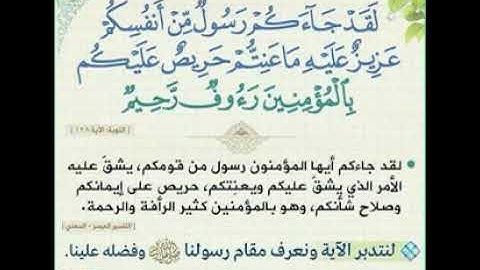 لَقَدْ جَآءَكُمْ رَسُولٌ مِّنْ أَنفُسِكُمْ
عَزِيزٌ عَلَيْهِ مَا عَنِتُّمْ حَرِيصٌ عَلَيْكُم
بِالْمُؤْمِنِينَ رَءُوفٌ رَّحِيمٌ
[التوبة: الآية ١٢٨]
• لقد جاءكم أيها المؤمنون رسول من قومكم، يشقّ عليه
الأمر الذي يشقّ عليكم ويعنِتكم، حريص على إيمانكم
وصلاح شأنكم، وهو بالمؤمنين كثير الرأفة والرحمة.
[التفسير الميسر - السعدي]
لنتدبر الآية ونعرف مقام رسولنا ﷺ وفضله علينا.